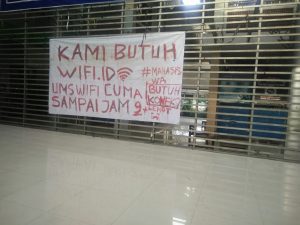 KAMI BUTUH
WIFI.ID
#MAHASIS
WA
UMS WIFI CUMA
BUTUH
KONEKSI
SAMPAI JAM 9